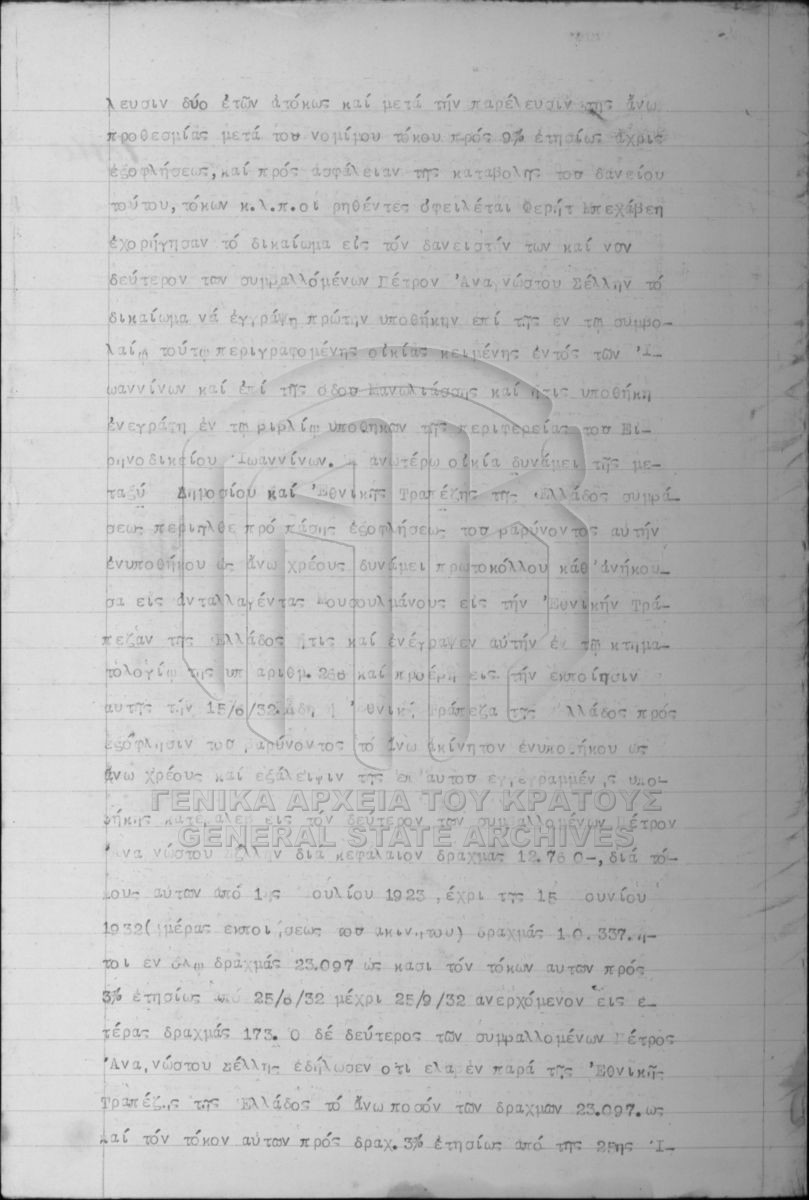 λευσιν δύο ἐτῶν ἀτόκως καί μετά τήν παρέλευσιν της ἄνω
προθεσμίας μετά του νομίμου τόκου πρός 9% ἐτησίως ἄχρις
ἐξοφλήσεως, καί πρός ἀσφάλειαν τῆς καταβολης του δανείου
τούτου, τόκων κ.λ.π. οι ρηθέντες ὀφειλέται Φερήτ Μπεχάβεη
ἐχορήγησαν τό δικαίωμα εἰς τόν δανειστήν των καί νυν
δεύτερον των συμβαλλομένων Πέτρον Ἀναγνώστου Σέλλην τό
δικαίωμα νά ἐγγράψη πρώτην υποθήκην επί τῆς εν τῳ συμβο-
λαίῳ τούτῳ περιγραφομένης οἰκίας κειμένης ἐντός τῶν Ἰ-
ωαννίνων καί ἐπί τῆς ὁδου καί ἥτις υποθήκη
ἐνεγράφη ἐν τῳ βιβλίῳ υποθηκων τῆς περιφερείας του Εἰ-
ρηνοδικείου Ἰωαννίνων. Η ἀνωτέρω οἰκία δυνάμει τῆς με-
ταξύ Δημοσίου καί Ἐθνικῆς Τραπέζης της Ἑλλάδος συμβά-
σεως περιηλθε πρό πάσης ἐξοφλήσεως του βαρύνοντος αὐτήν
ἐνυποθήκου ὡς ἄνω χρέους δυνάμει πρωτοκόλλου κάθ'ἀνήκου-
σα εἰς ἀνταλλαγέντας Μουσουλμάνους εἰς τήν Ἐθνικήν Τρά-
πεζαν της Ἑλλάδος ἥτις καί ἐνέγραψεν αὐτήν ἐν τῳ κτημα-
τολογίῳ της υπ αριθμ. καί προέβη εις τήν εκποίησιν
αυτης τήν 15/6/32. Ἤδη ἡ Ἐθνική Τράπεζα της Ἑλλάδος πρός
ἐξόφλησιν του βαρύνοντος τό ἄνω ἀκίνητον ἐνυποθήκου ὡς
ἄνω χρέους καί εξάλειψιν της ἐπ'αυτου εγγεγραμμένης υπο-
θήκης κατέβαλεν εις τόν δεύτερον των συμβαλλομένων Πέτρον
Ἀναγνώστου Σέλλην διά κεφάλαιον δραχμάς 12.760-, διά τό-
κους αὐτων από 1ης Ἰουλίου 1923 μέχρι της 15 Ἰουνίου
1932(ἡμέρας εκποιήσεως του ακινήτου) δραχμάς 10.337. ἤ-
τοι εν ὅλῳ δραχμάς 23.097 ὡς κασι τόν τόκων αυτων πρός
3% ἐτησίως από 25/6/32 μέχρι 25/9/32 ανερχόμενον εἰς ε-
τέρας δραχμάς 173. Ὁ δέ δεύτερος τῶν συμβαλλομένων Πέτρος
Ἀναγνώστου Σέλλης ἐδήλωσεν ὅτι ελαβεν παρά τῆς Ἐθνικῆς
Τραπέζης της Ἑλλάδος τό ἄνω ποσόν τῶν δραχμων 23.097. ως
καί τόν τόκον αὐτων πρός δραχ. 3% ἐτησίως ἀπό της 25ης Ἰ-
ΓΕΝΙΚΑ ΑΡΧΕΙΑ ΤΟΥ ΚΡΑΤΟΥΣ
GENERAL STATE ARCHIVES